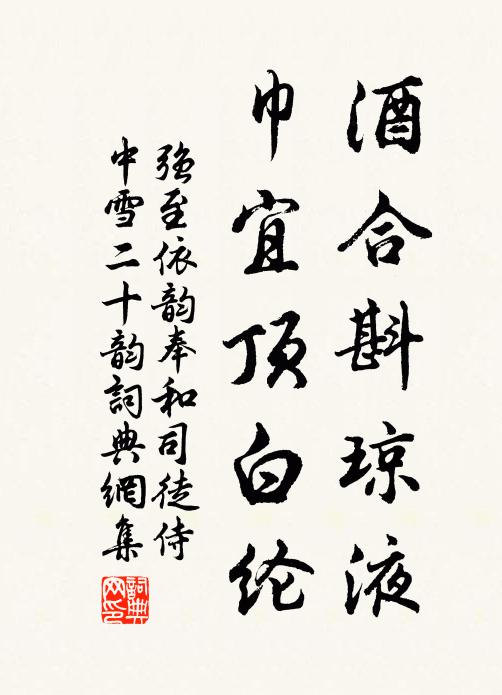 酒合斟琼液
巾宜顶白纶
强至依韵奉和司徒侍
中雪二十韵詞典網集
詞典网印